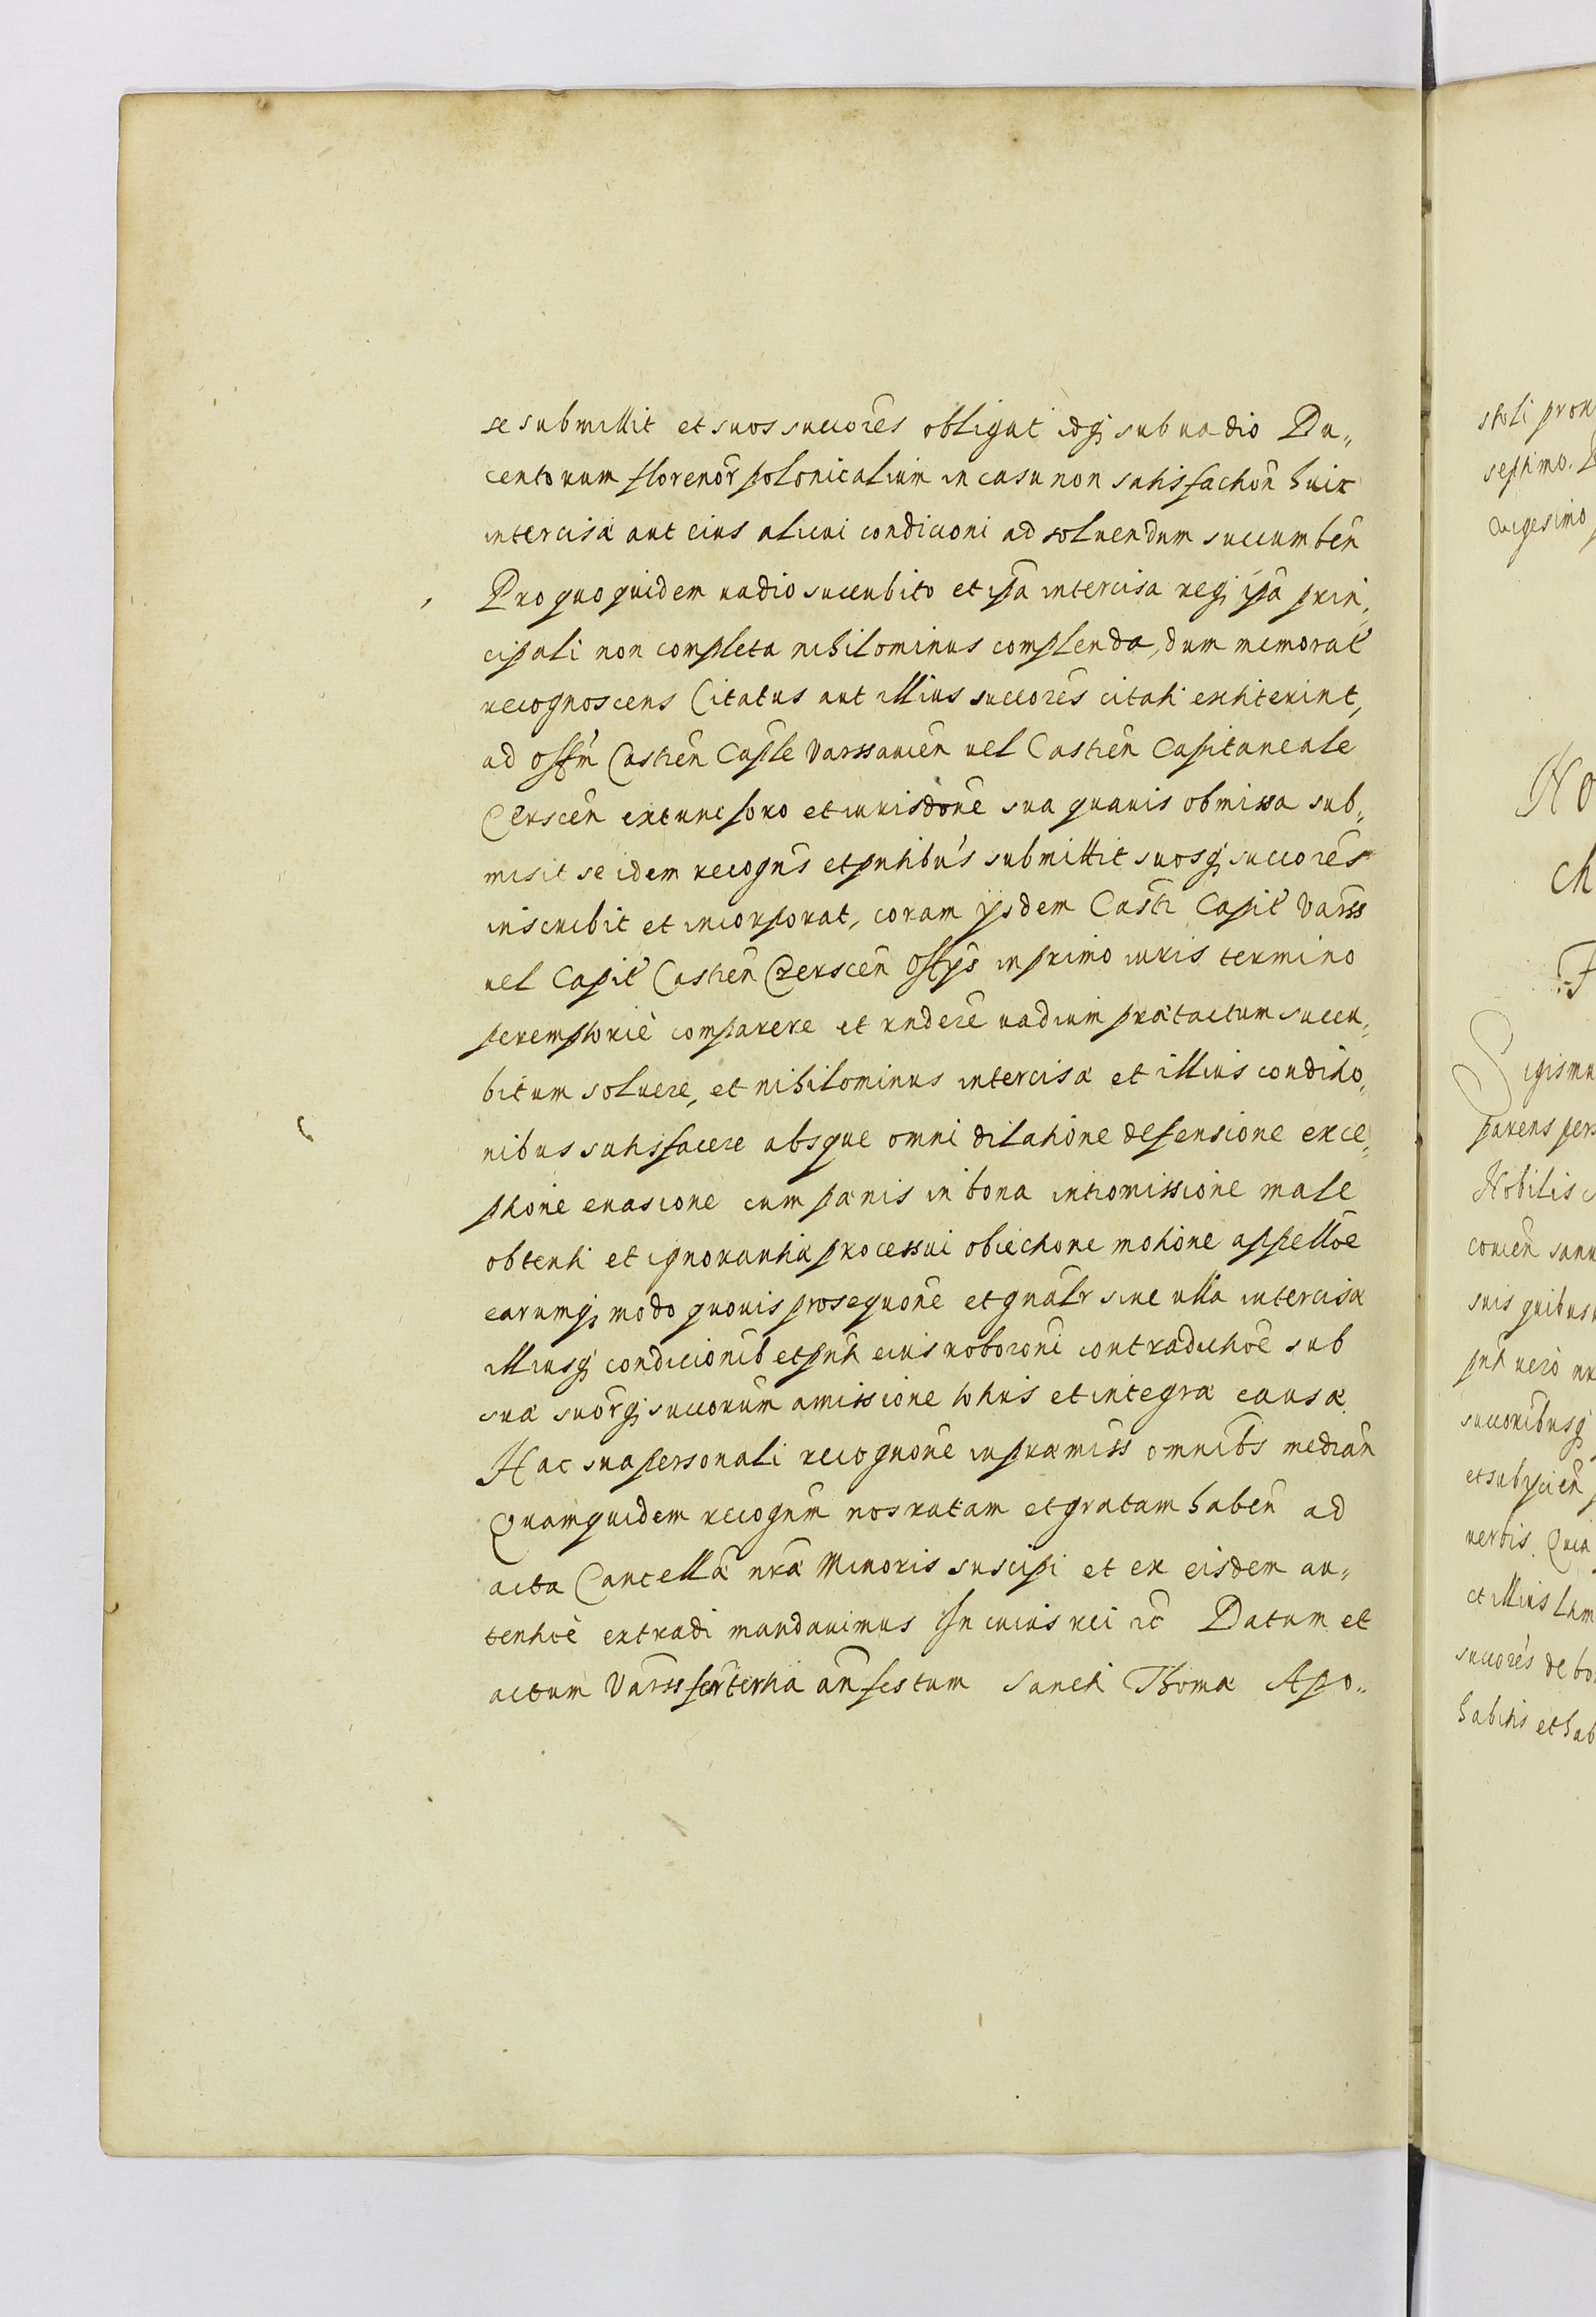 se submittit et suos succores obligat idq; sub vadio Du„
centorum florenor̄ polonicalium in casu non satisfaction̄ huic
intercisæ aut eius alicui condicioni ad soluendum succumben̄
Pro quo quidem vadio succubito et ip̄a intercisa req; ip̄a prin„
cipali non completa nihilominus complenda, dum memorat̄
recognoscens Citatus aut illius succōres citati extiterint,
ad offm̄ Castren̄ Cap̄le Varssauien̄ uel Castren̄ Capitaneale
Cerscen̄ extunc foro et iurisdōne sua quauis obmissa sub„
misit se idem recogn̄s et p̄ntibūs submittit suosq; succōres
inscribit et incorporat, coram ijsdem Castr̄ Capit̄ Varss̄
uel Capit̄ Castren̄ Czerscen̄ off̄ijs in primo iuris termino
peremptoriè comparere et rn̄dere vadium prætactum succu„
bitum soluere, et nihilominus intercisæ et illius conditio„
nibus satisfacere absque omni dilatione defensione exce„
ptione euasione cum pænis in bona intromissione male
obtenti et ignorantiæ processui obiectione motione appellōe
earumq; modo quouis prosequōne et gnālr siue ulla intercisæ
illiusq; condicionib̄ et pn̄ti eius roboroni contradictōe sub
suæ suōrq; succorum amissione totius et integræ causæ
Hac sua personali recognōne in præmiss̄ omnib̄s median̄
Quamquidem recognm̄ nos ratam et gratam haben̄ ad
acta Cancellæ nræ Minoris suscipi et ex eisdem au„
tenticè extradi mandauimus In cuius rei etc̄ Datum et
actum Varss̄ fer̄ tertia an̄ festum Sancti Thomæ Apo„
stoli prox
septimo.
vigesimo
No
ch
F
Sigismu
parens pers
Nobilis
suis quibus
succoribusq;
verbis. Quia
et illius
succores de bo
habitis et hab